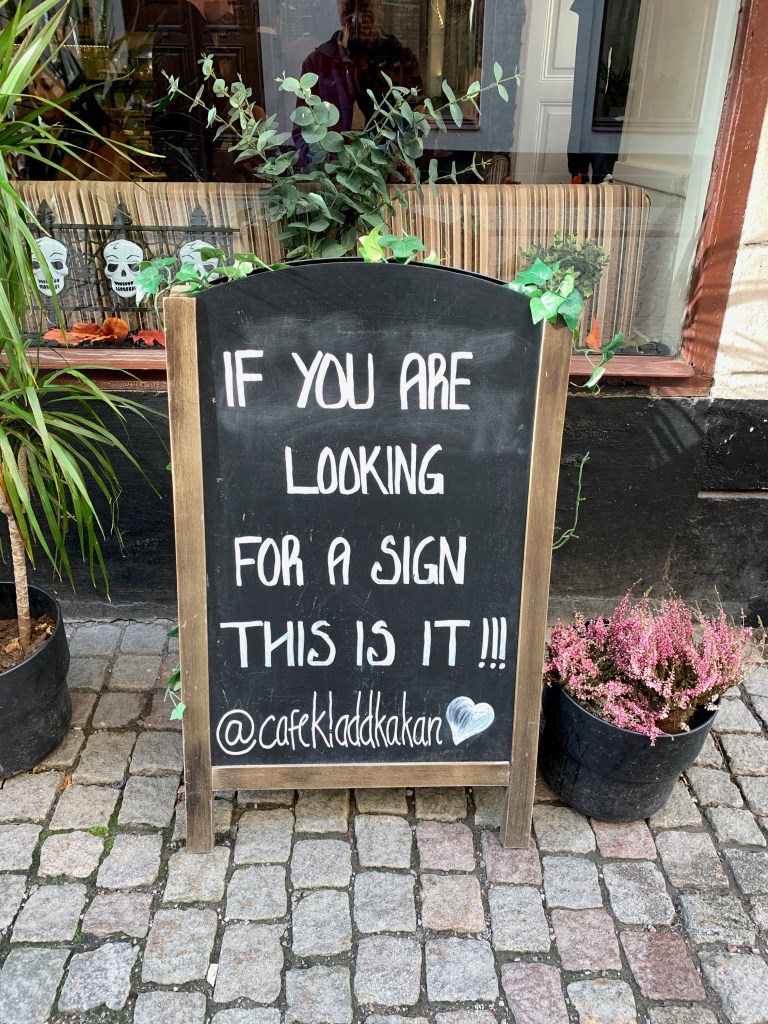 IF YOU ARE
LOOKING
FOR A SIGN
THIS IS IT !!!
@cafekladdkakan